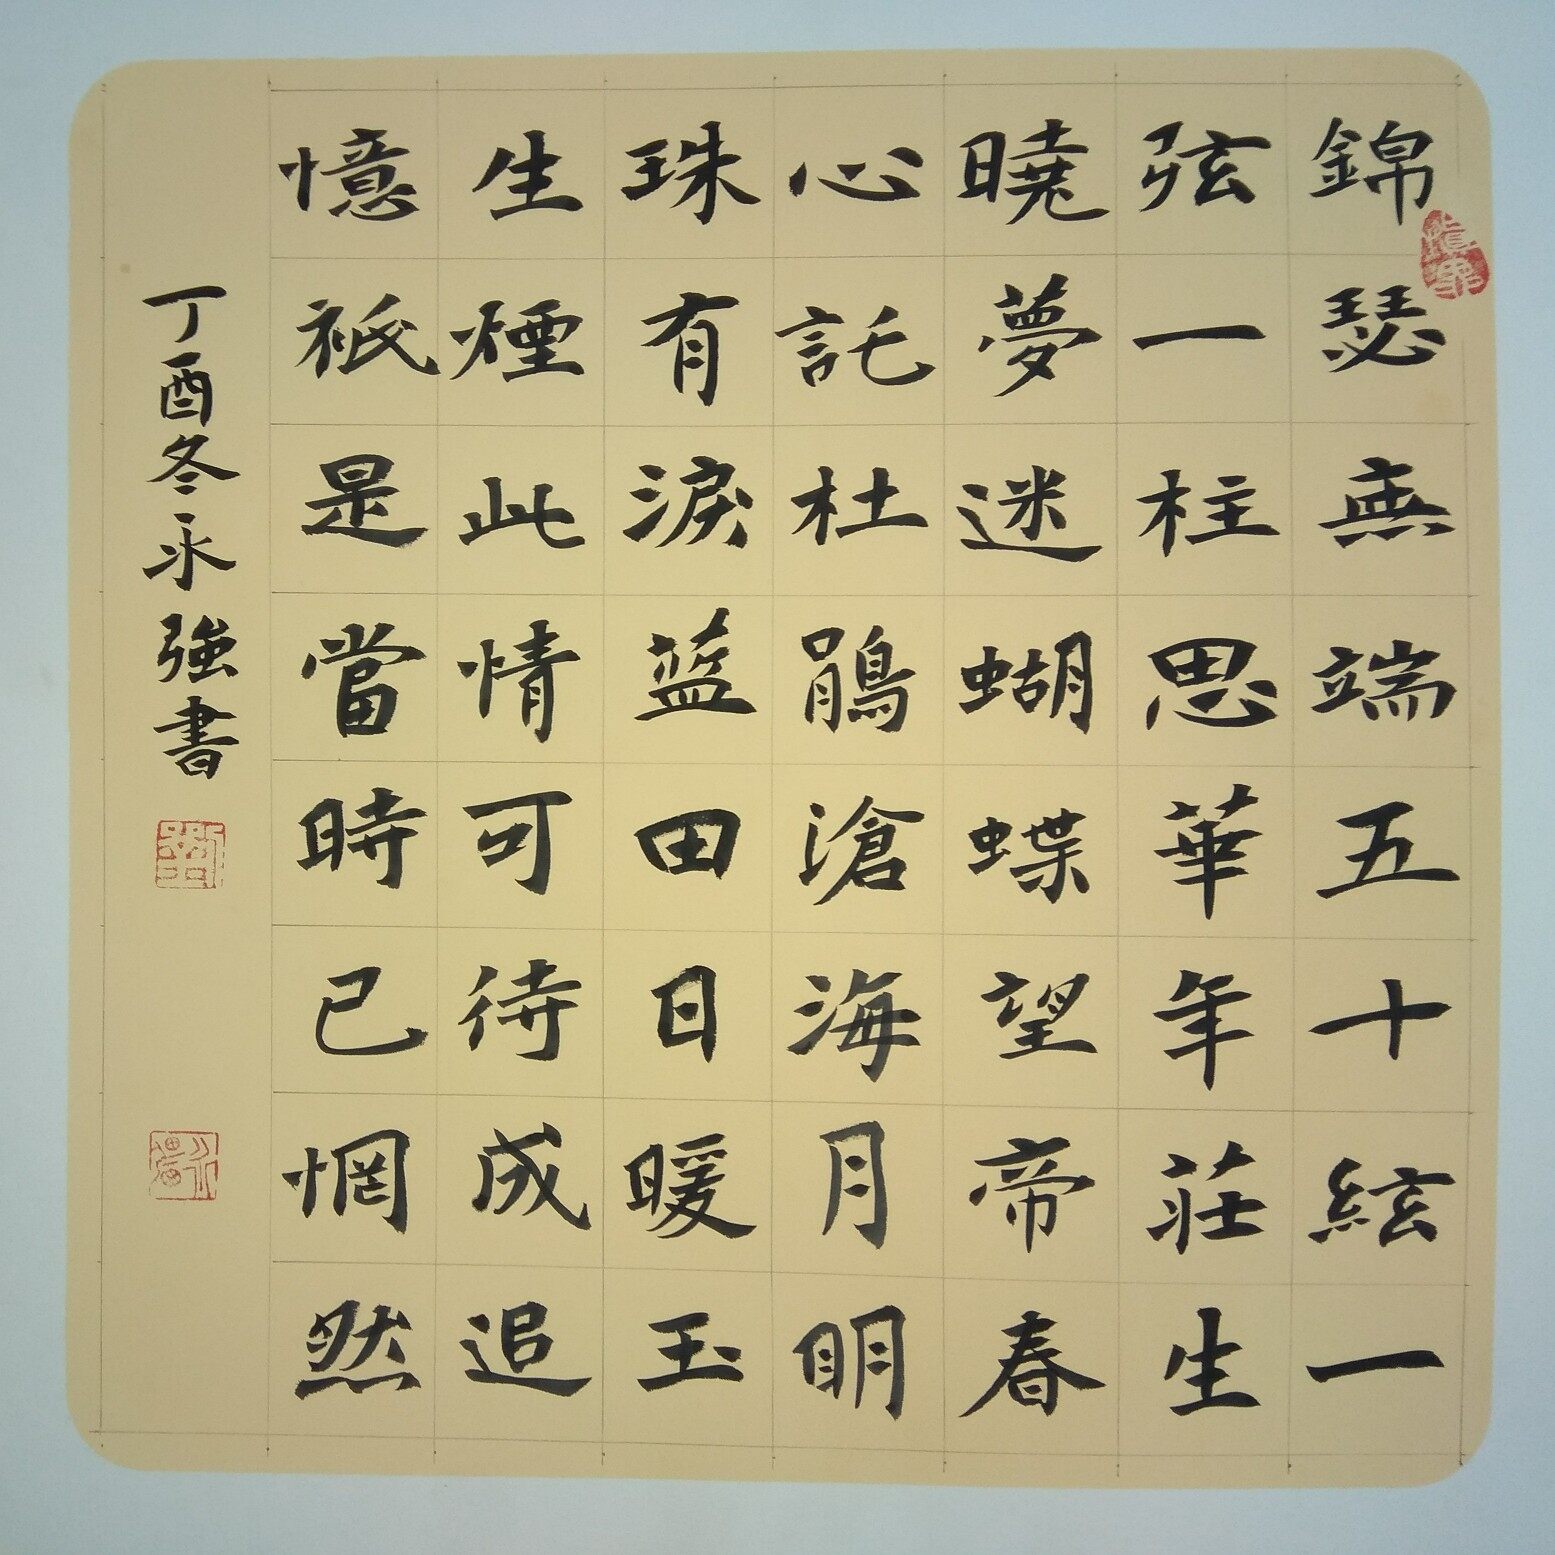 錦瑟無端五十絃一
弦一柱思華年莊生
曉夢迷蝴蝶望帝春
心託杜鵑滄海月明
珠有淚藍田日暖玉
生煙此情可待成追
憶祇是當時已惘然
丁酉冬永強書